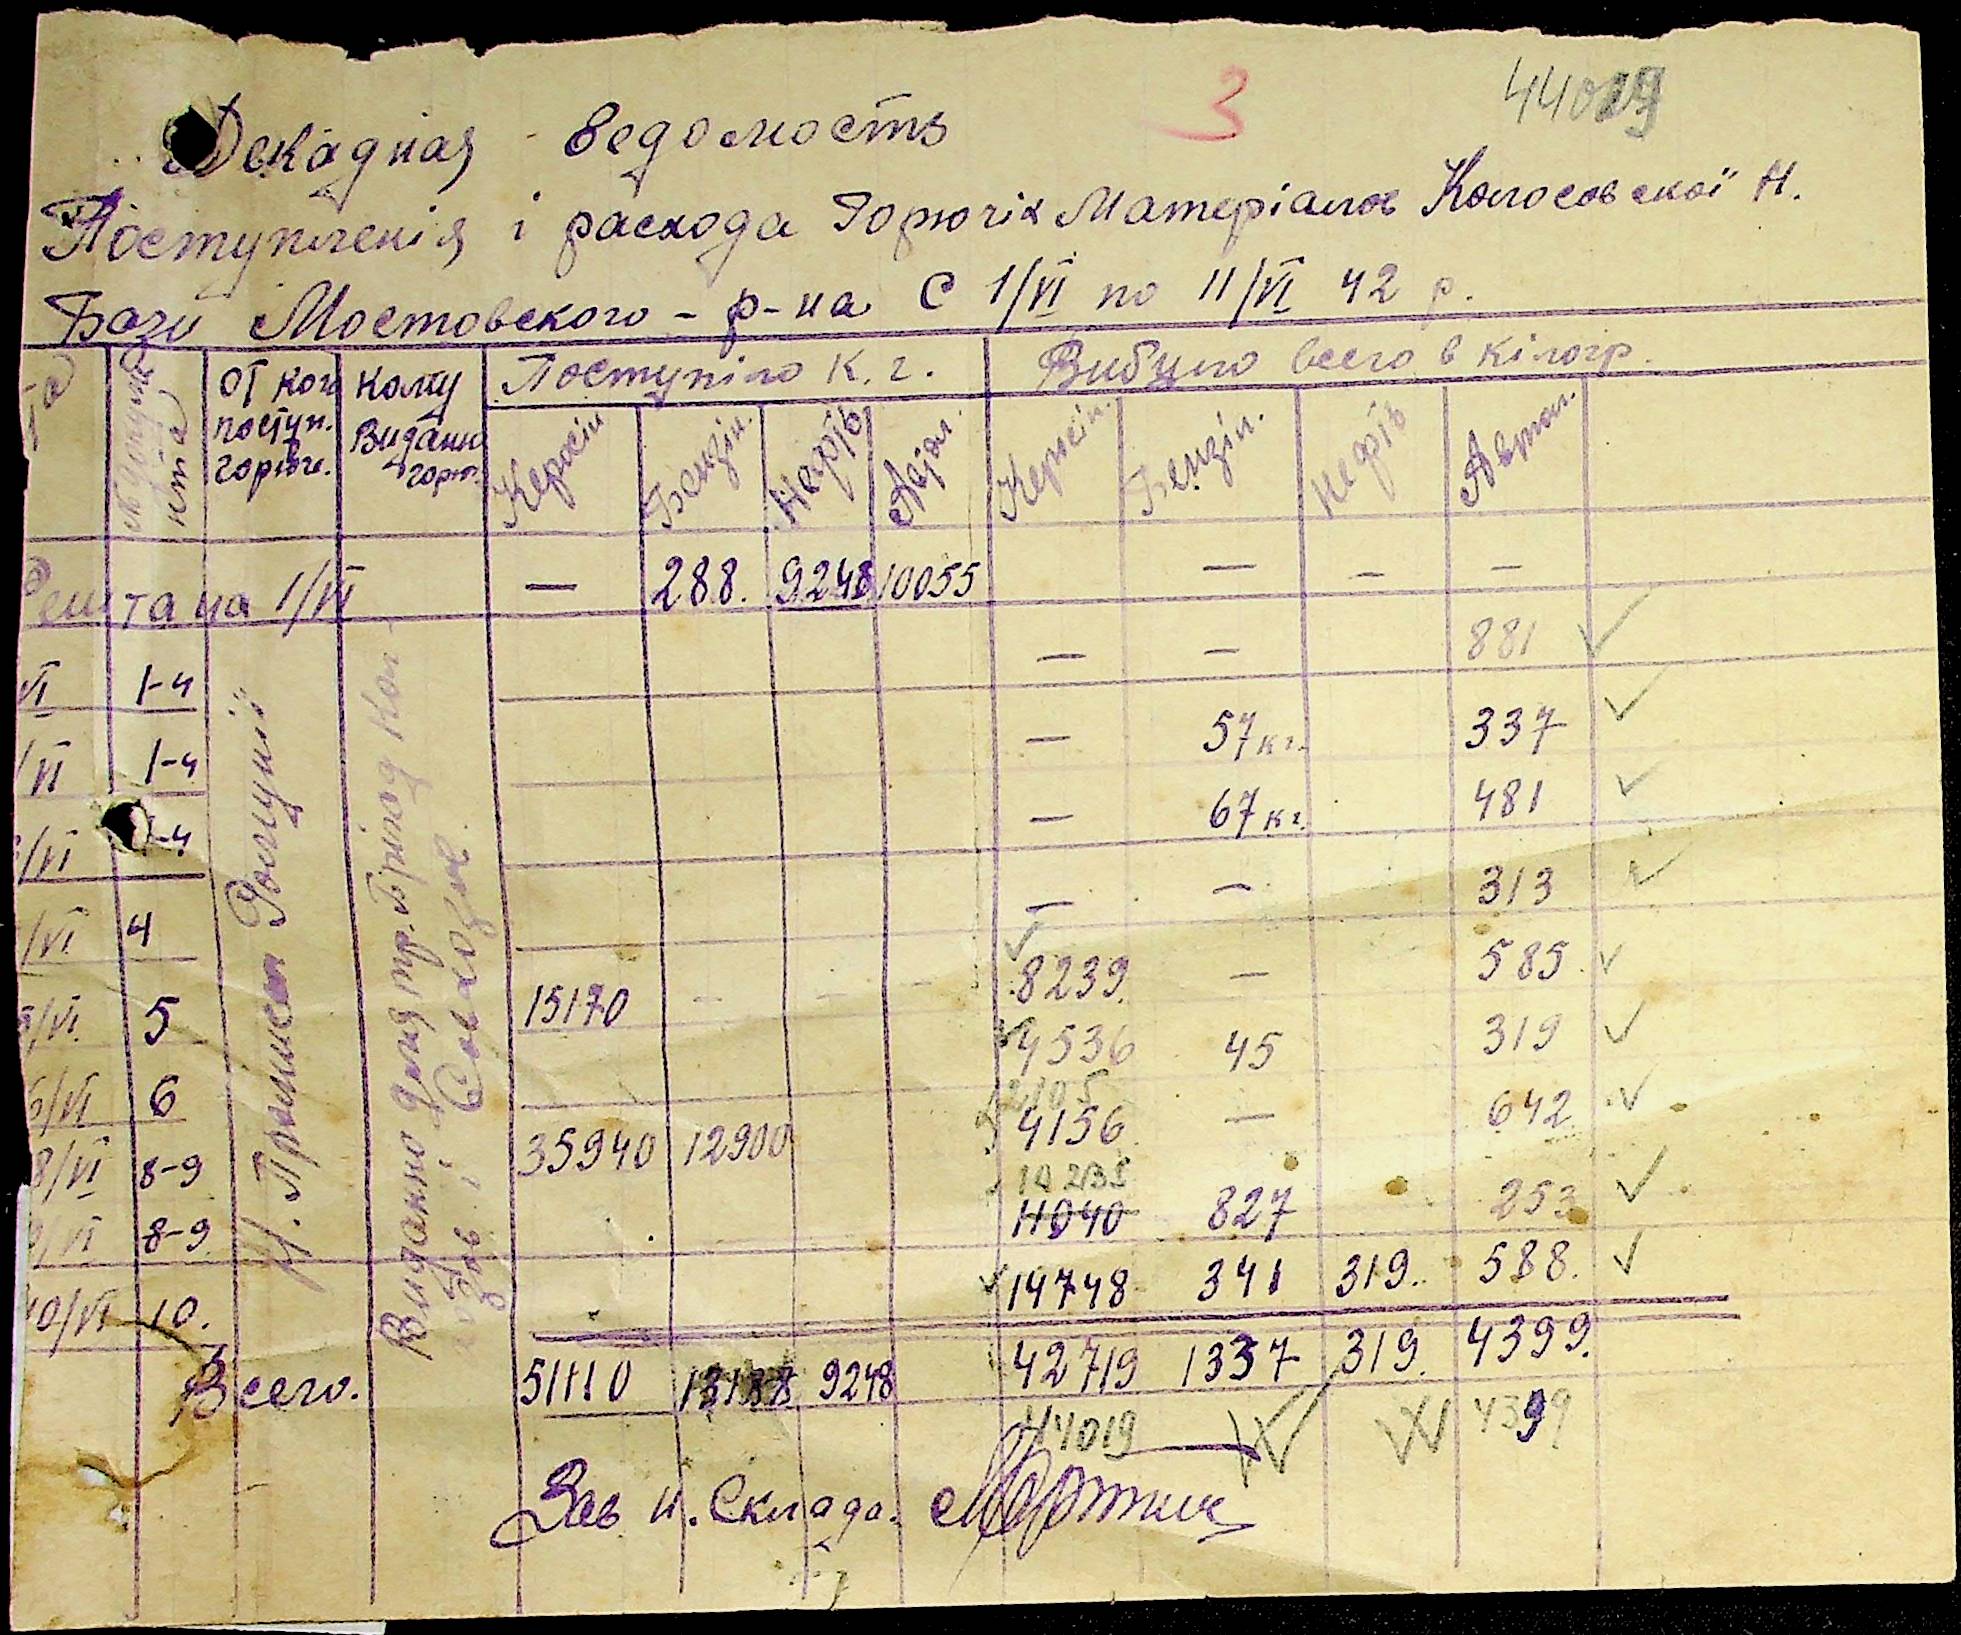 3
44019
Декадная ведомость
Поступленія і расхода Горючіх Матеріалов Колосовскої Н.
Бази Мостовского - р-на С 1/VI по 11/VI 42 р.
от кого поступ. горюч. Кому Видано горюч. Поступіло К. г. Вибуло всего в кілогр.
Керосін Бензін. Нефть Автол. Керосін. Бензін. Нефть Автол.
Решта на 1/VI — 288. 9248 10055 — — —
VI 1-4 — — 881
/VI 1-4 — 57 кг. 337
/VI 1-4 — 67 кг. 481
/VI 4 — — 313
5/VI. 5 15170 — — — 8239. — 585.
6/VI 6 4536 45 319
2105
8/VI 8-9 35940 12900 4156. — 642
10235
9/VI 8-9 11040 827 253
10/VI 10. 14748 341 319. 588.
Всего. 51110 13188 9248 42719 1337 319. 4399.
44019 4399
Видано для
і Совхозе.
Зав. н. Склада.